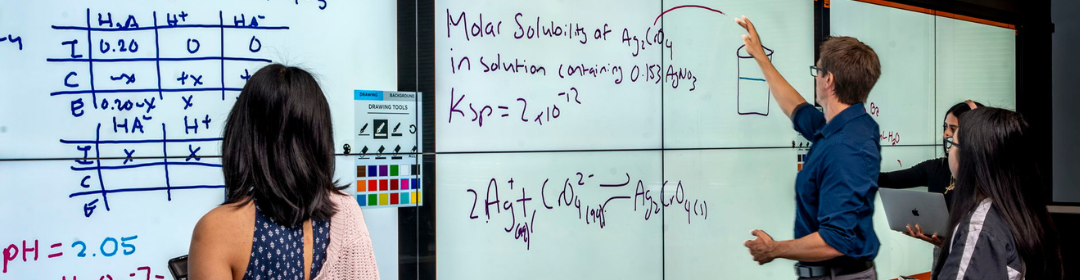 H₂A H⁺ HA⁻
I 0.20 0 0
C -x +x +
E 0.20-x x
HA⁻ H⁺
I x x
C
E
pH = 2.05
DRAWING BACKGROUND
DRAWING TOOLS
Molar Solubility of Ag₂CrO₄
in solution containing 0.153 AgNO₃
Ksp = 2 x10⁻¹²
2Ag⁺(aq) + CrO₄²⁻(aq) ⇌ Ag₂CrO₄(s)